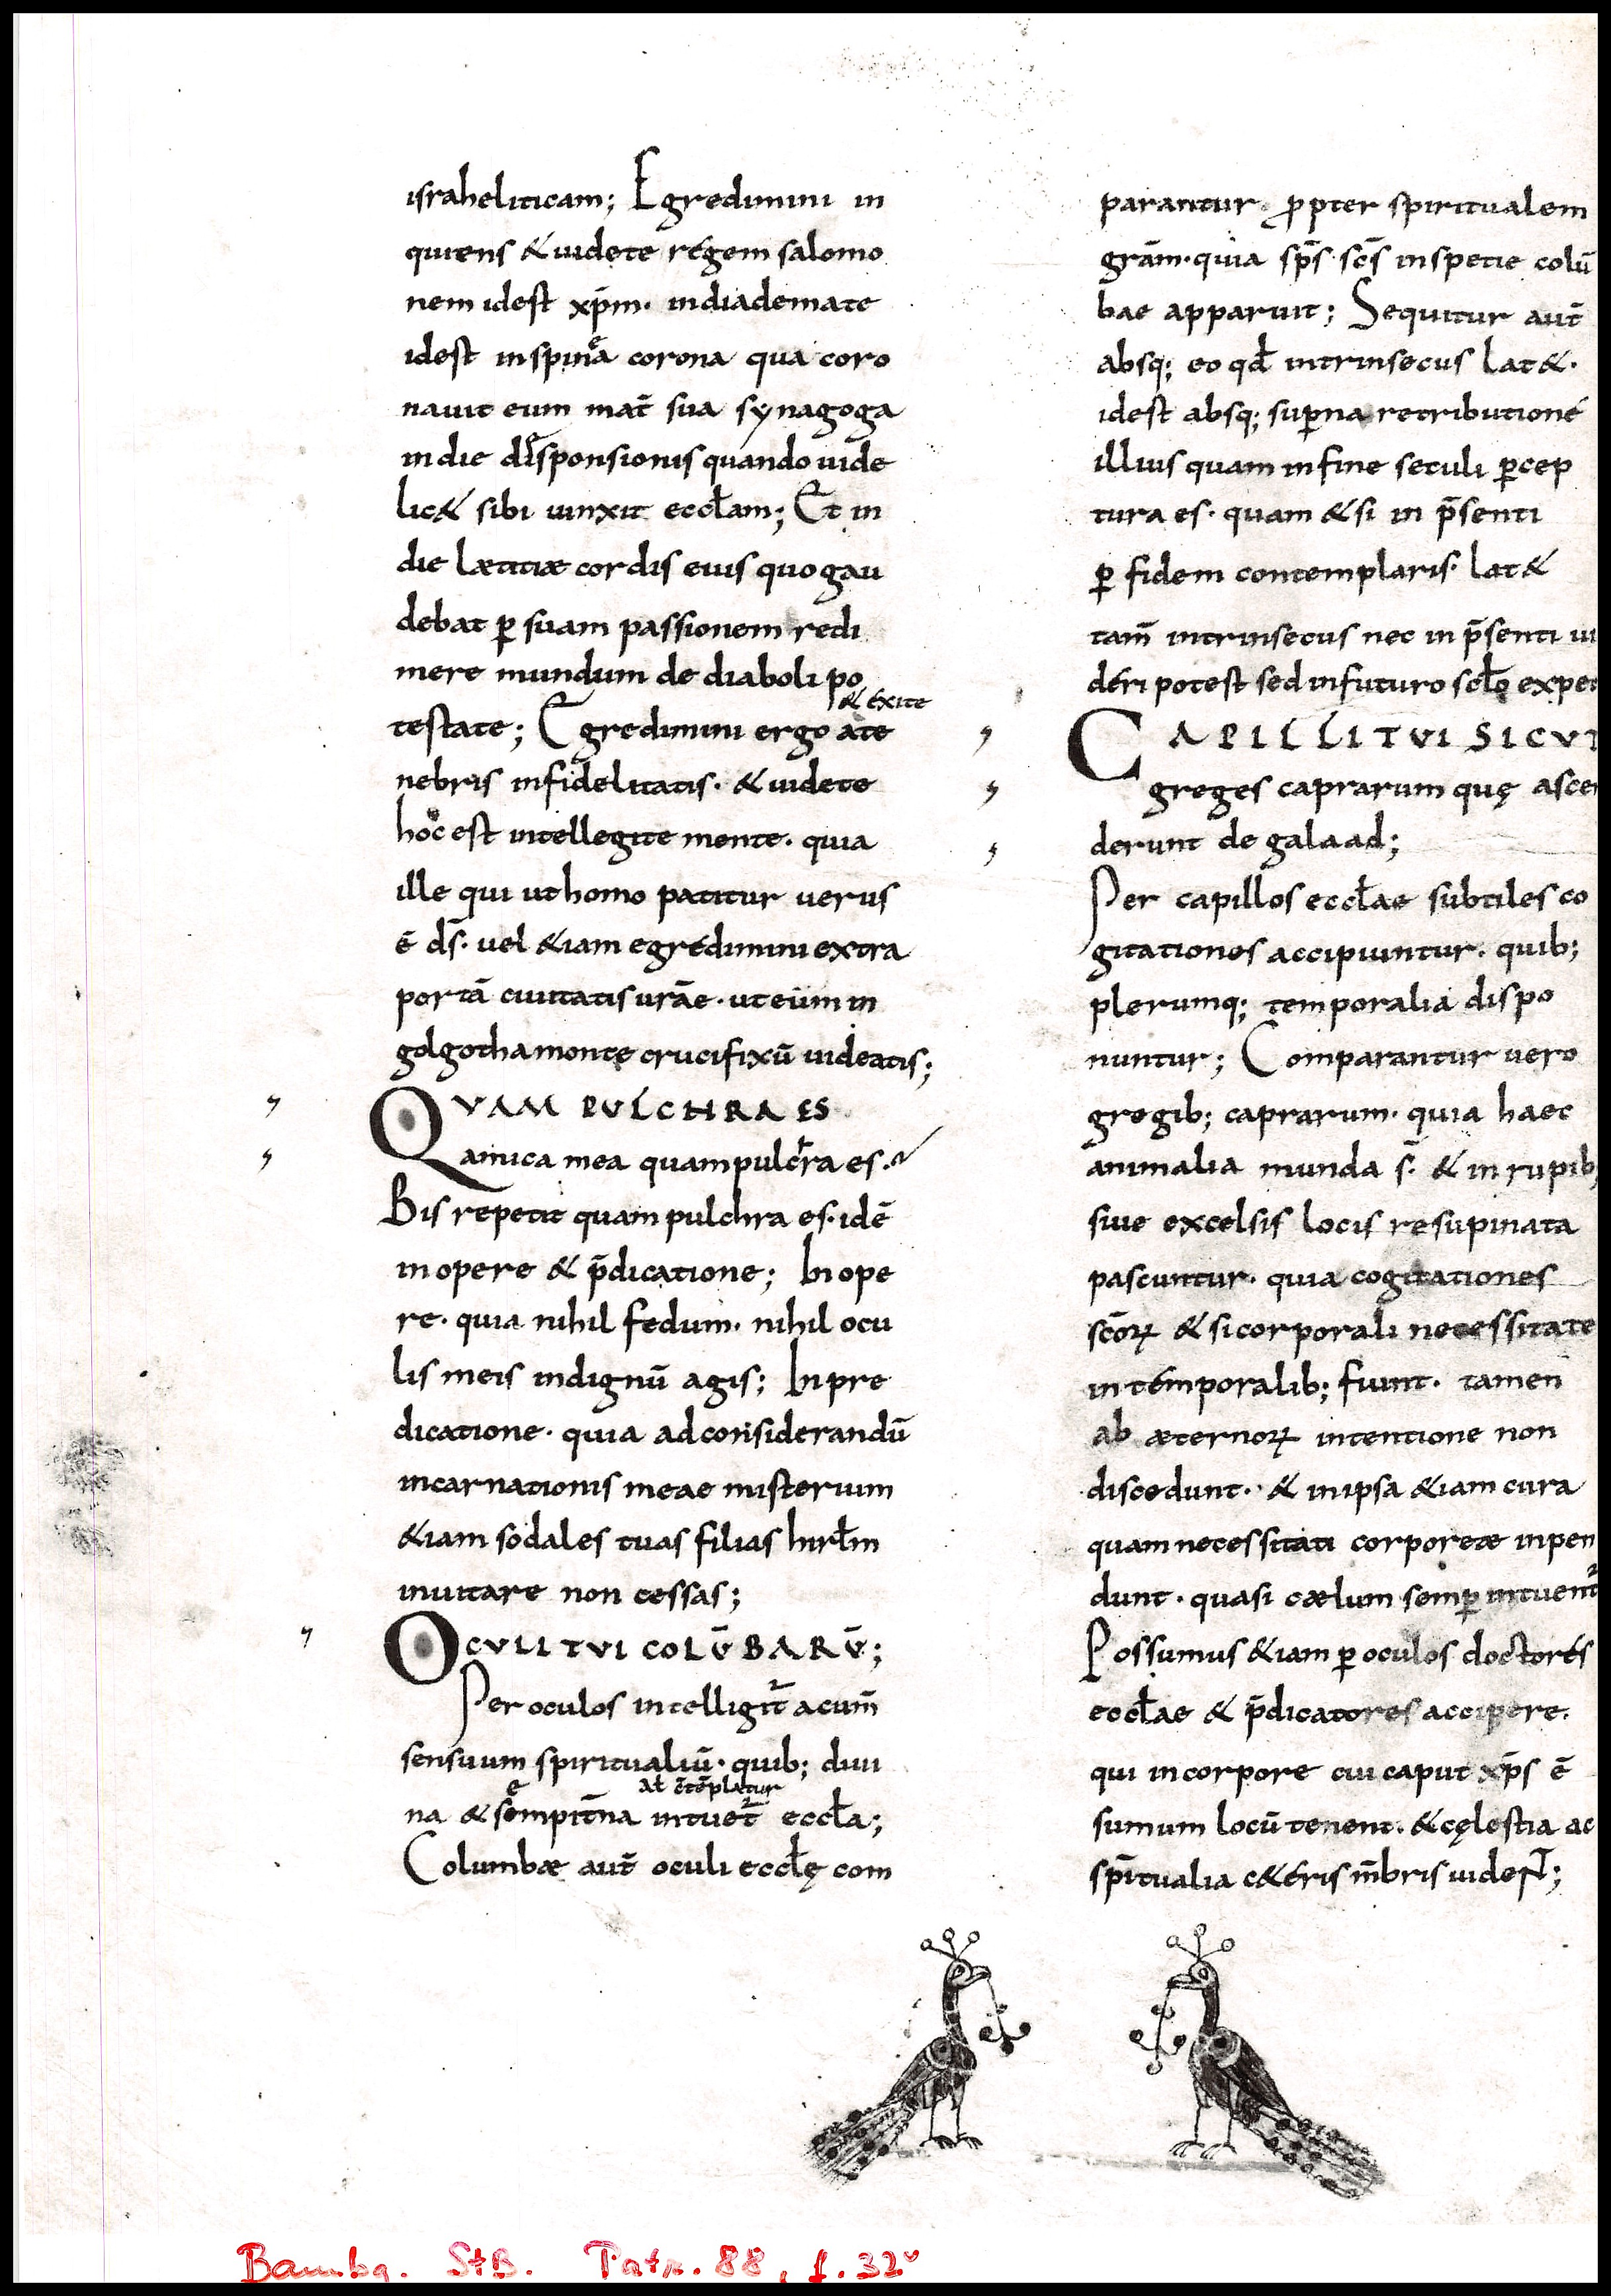 israheliticam; Egredimini in
quiens & uidete regem salomo
nem idest xp̄m· indiademate
idest inspinea corona qua coro
nauit eum mat̄ sua synagoga
indie disponsionis quando uide
lic& sibi uinxit eccl̄am; Et in
die lætitiæ cordis eius quo gau
debat ꝑ suam passionem redi
mere mundum de diaboli po
& exite
testate; Egredimini ergo ate
nebris infidelitatis· & uidete
hoc est intellegite mente· quia
ille qui ut homo patitur uerus
ē ds̄· uel &iam egredimini extra
portā ciuitatis urāe· ut eum in
golgotha monte crucifixū uideatis;
QVAM PULCHRA ES
amica mea quam pulchra es·
Bis repetit quam pulchra es· idē
in opere & p̄dicatione; In ope
re· quia nihil fedum· nihil ocu
lis meis indignū agis; In pre
dicatione· quia ad considerandū
incarnationis meae misterium
&iam sodales tuas filias hirl̄m
inuitare non cessas;
OCVLI TVI COLŪBARŪ;
Per oculos intelligit̄ acum̄
sensuum spiritualiū· quib; diui
e at c̄tēplatur
na & sempit̄na intuet̄ eccl̄a;
Columbæ aut̄ oculi eccl̄ę com
parantur· ꝓpter spiritualem
grām· quia sp̄s sc̄s inspetie colū
bae apparuit; Sequitur aut̄
absq; eo qd̄ intrinsecus lat&·
idest absq; suꝑna retributione
illius quam in fine seculi ꝑcep
tura es· quam & si in p̄senti
ꝑ fidem contemplaris· lat&
tam̄ intrinsecus nec in p̄senti ui
deri potest sed infuturo scl̄o expec
CAPILLI TVI SICUT
greges caprarum quę ascen
derunt de galaad;
Per capillos eccl̄ae subtiles co
gitationes accipiuntur· quib;
plerumq; temporalia dispo
nuntur; Comparantur uero
gregib; caprarum· quia haec
animalia munda s̄· & in rupib;
siue excelsis locis resupinata
pascuntur· quia cogitationes
sc̄oꝝ & si corporali necessitate
in temporalib; fiunt· tamen
ab æternoꝝ intentione non
discedunt· & in ipsa &iam cura
quam necessitati corporeæ inpen
dunt· quasi cælum semꝑ intuent̄
Possumus &iam ꝑ oculos doctores
eccl̄ae & p̄dicatores accipere·
qui in corpore cui caput xp̄s ē
sumum locū tenent· & cęlestia ac
sp̄itualia c&eris m̄bris uident;
Bambg. StB. Patr. 88, f. 32v